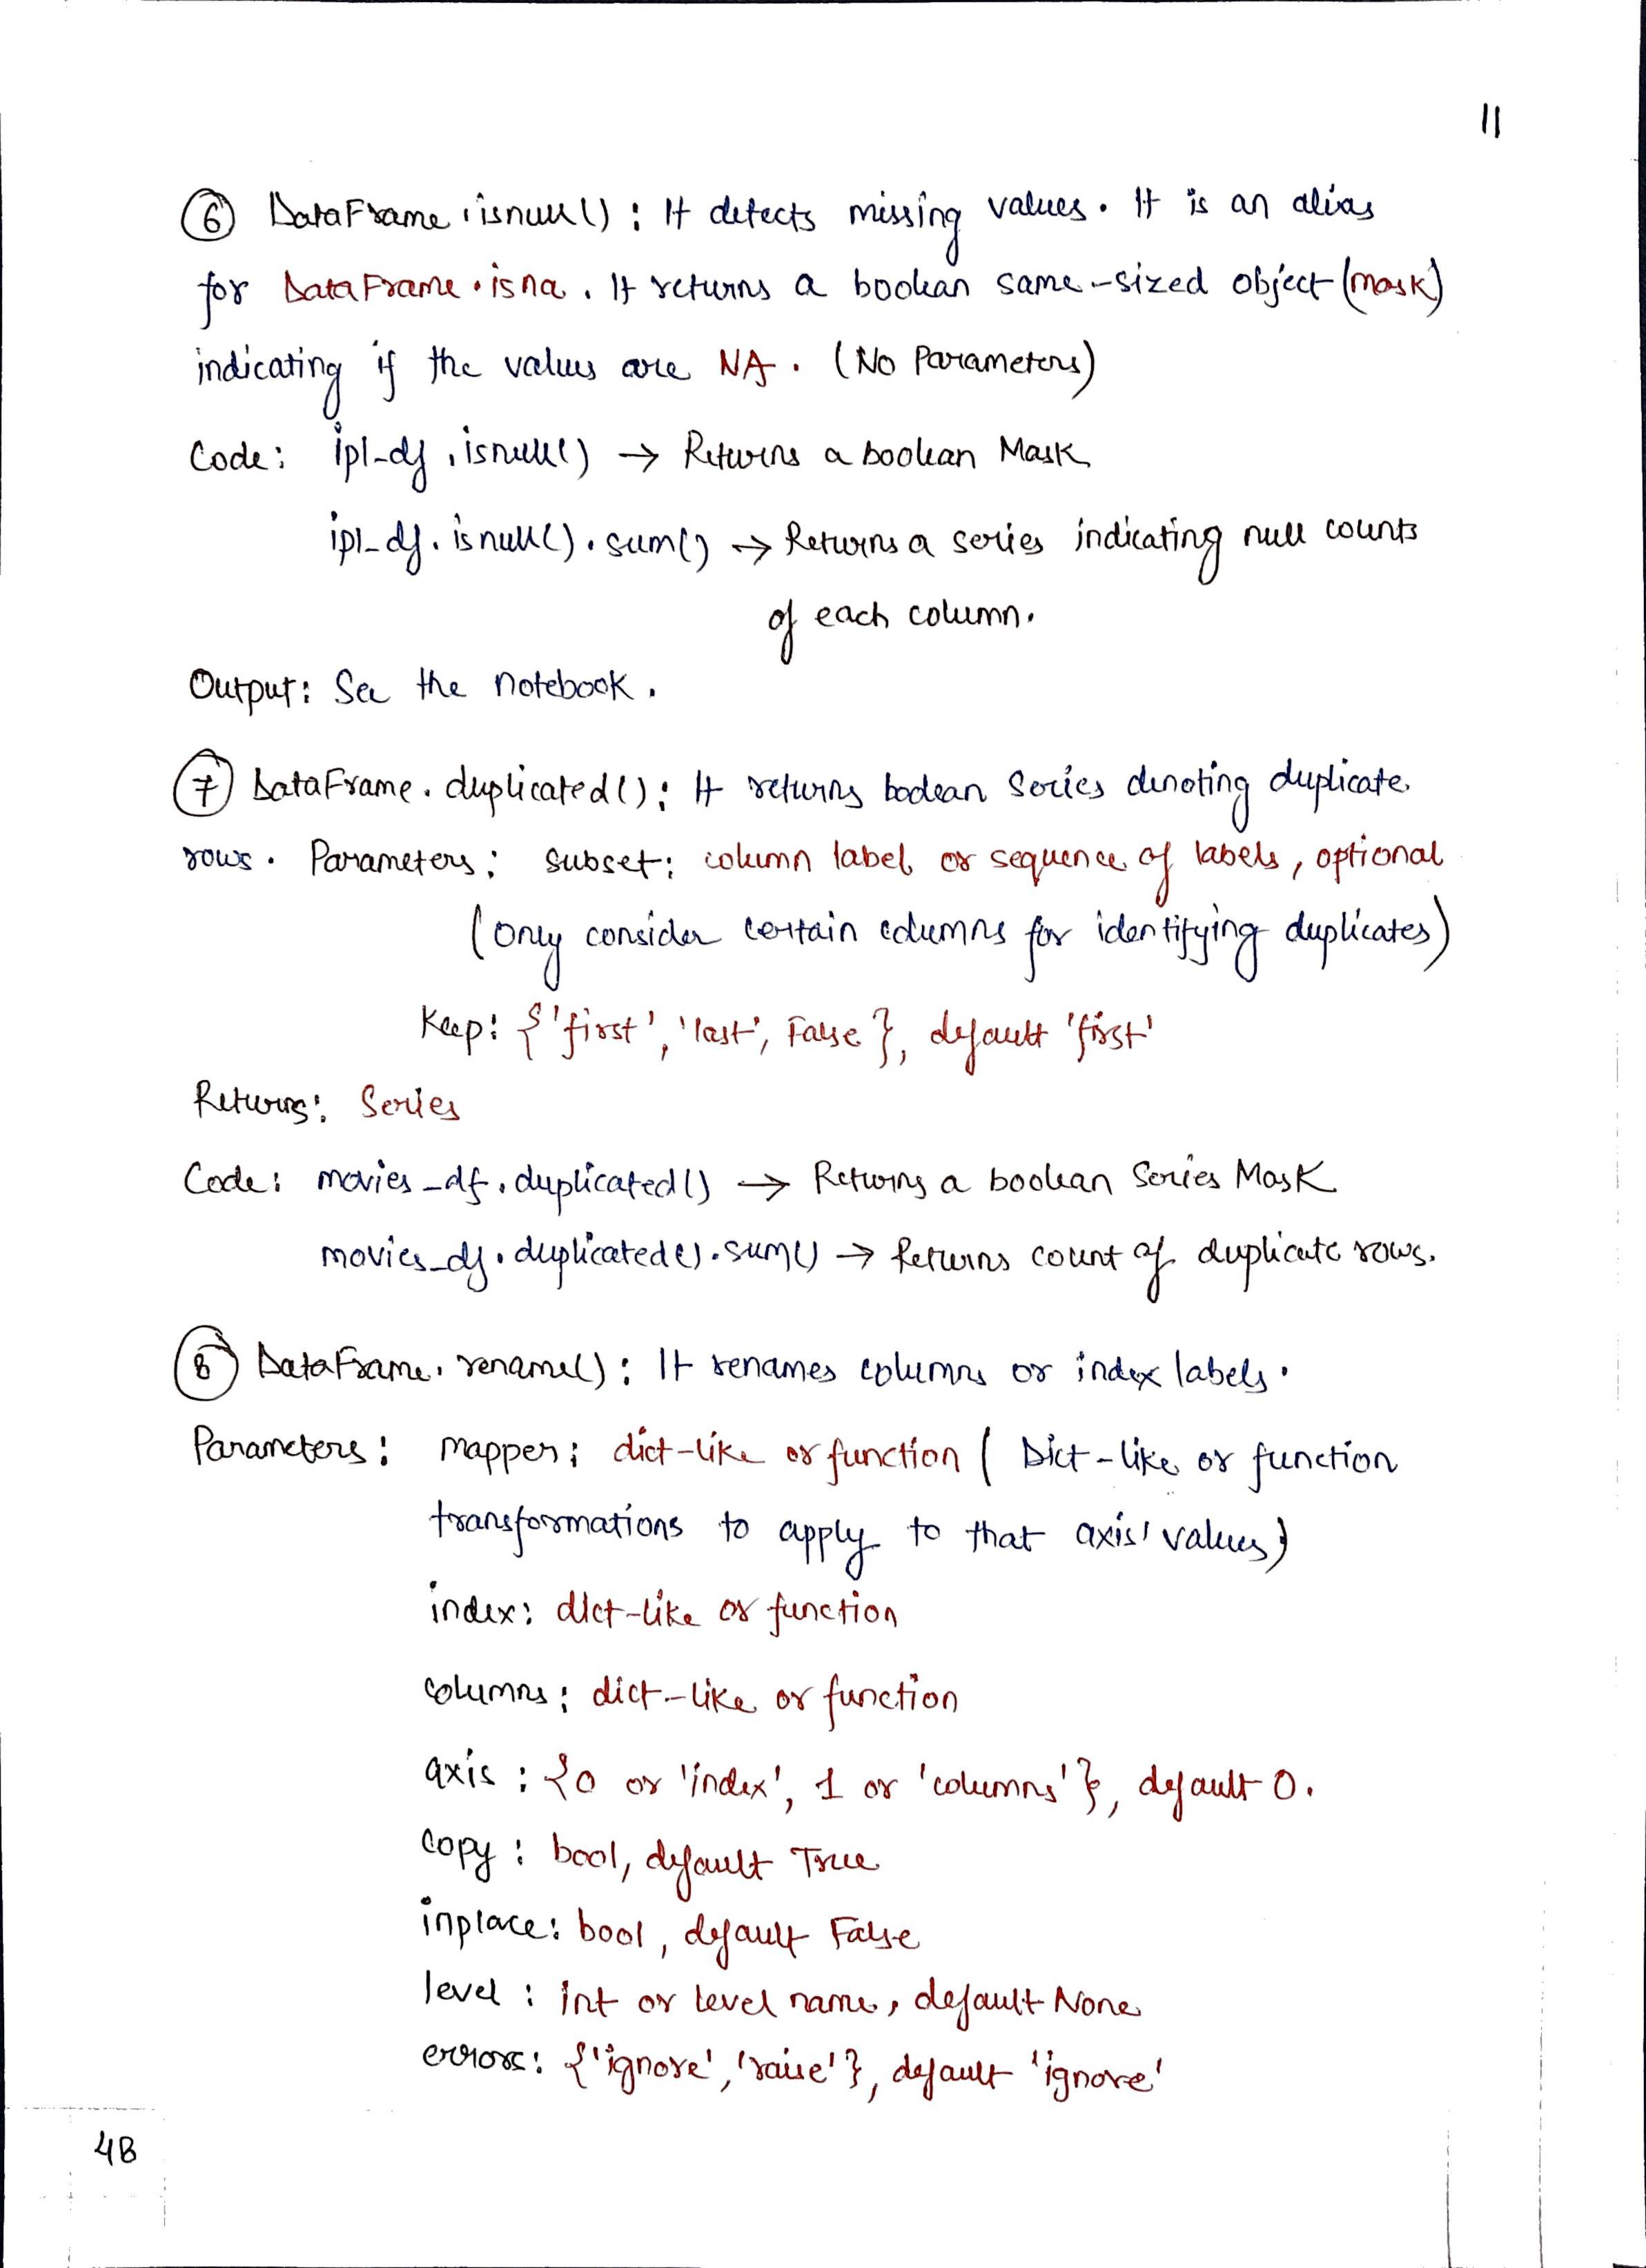 11
⑥ DataFrame.isnull() : It detects missing values. It is an alias
for DataFrame.isna. It returns a boolean same-sized object (mask)
indicating if the values are NA. (No Parameters)
Code: ipl_df.isnull() → Returns a boolean Mask
ipl_df.isnull().sum() → Returns a series indicating null counts
of each column.
Output: See the notebook.
⑦ DataFrame.duplicated(): It returns boolean Series denoting duplicate
rows. Parameters: subset: column label or sequence of labels, optional
(only consider certain columns for identifying duplicates)
Keep: {'first', 'last', False}, default 'first'
Returns: Series
Code: movies_df.duplicated() → Returns a boolean Series Mask
movies_df.duplicated().sum() → Returns count of duplicate rows.
⑧ DataFrame.rename(): It renames columns or index labels.
Parameters: mapper: dict-like or function ( Dict-like or function
transformations to apply to that axis' values)
index: dict-like or function
columns: dict-like or function
axis : {0 or 'index', 1 or 'columns'}, default 0.
copy : bool, default True
inplace: bool, default False
level : int or level name, default None
errors: {'ignore', 'raise'}, default 'ignore'
4B